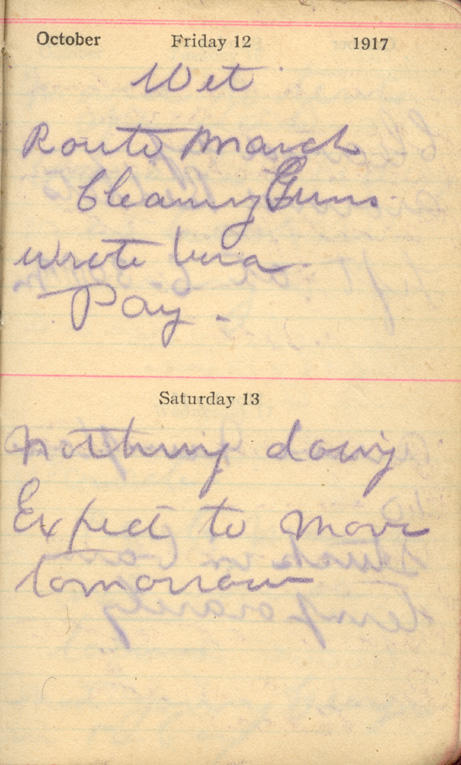 October Friday 12 1917
Wet
Route March
Cleaning Guns
wrote Vera
Pay -
Saturday 13
Nothing doing
Expect to move
tomorrow